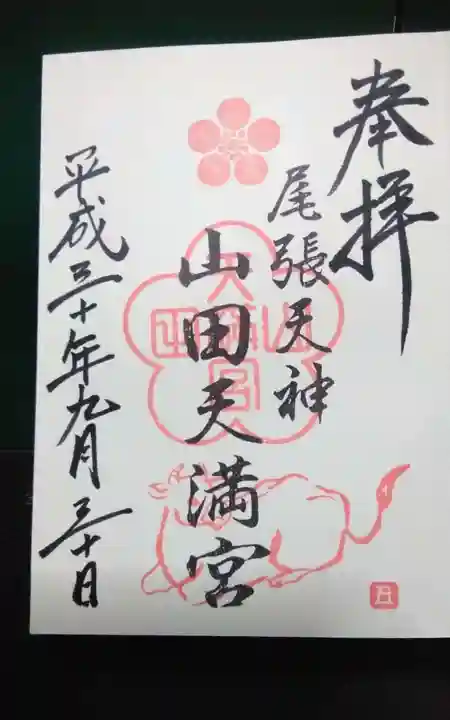 奉拝
尾張天神
山田天満宮
平成三十年九月三十日
丑